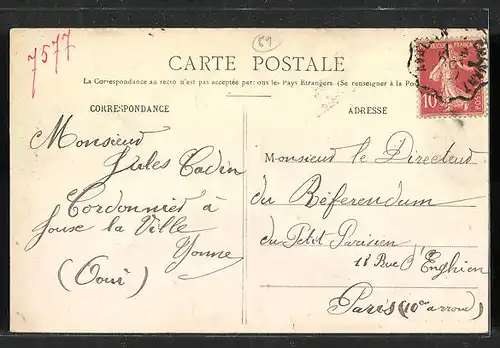 7577
89
CARTE POSTALE
La Correspondance au recto n'est pas acceptée par tous les Pays Etrangers. (Se renseigner à la Poste
CORRESPONDANCE
ADRESSE
Monsieur
Jules Cadin
Cordonnier à
Joux la Ville
Yonne
(Oui)
Monsieur le Directeur
du Référendum
du Petit Parisien
18 Rue d'Enghien
Paris (10e arrond)
10
POSTES